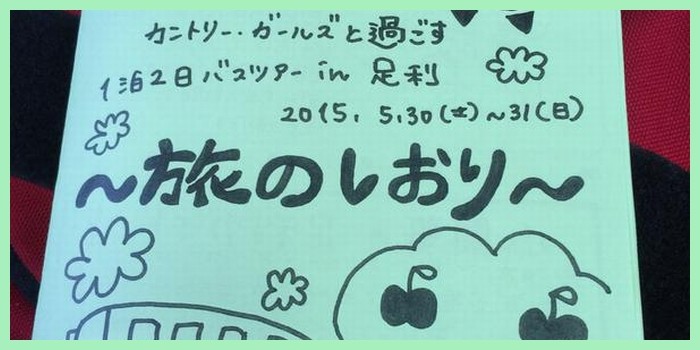 カントリー・ガールズと過ごす
1泊2日バスツアー in 足利
2015. 5.30(土)~31(日)
~旅のしおり~